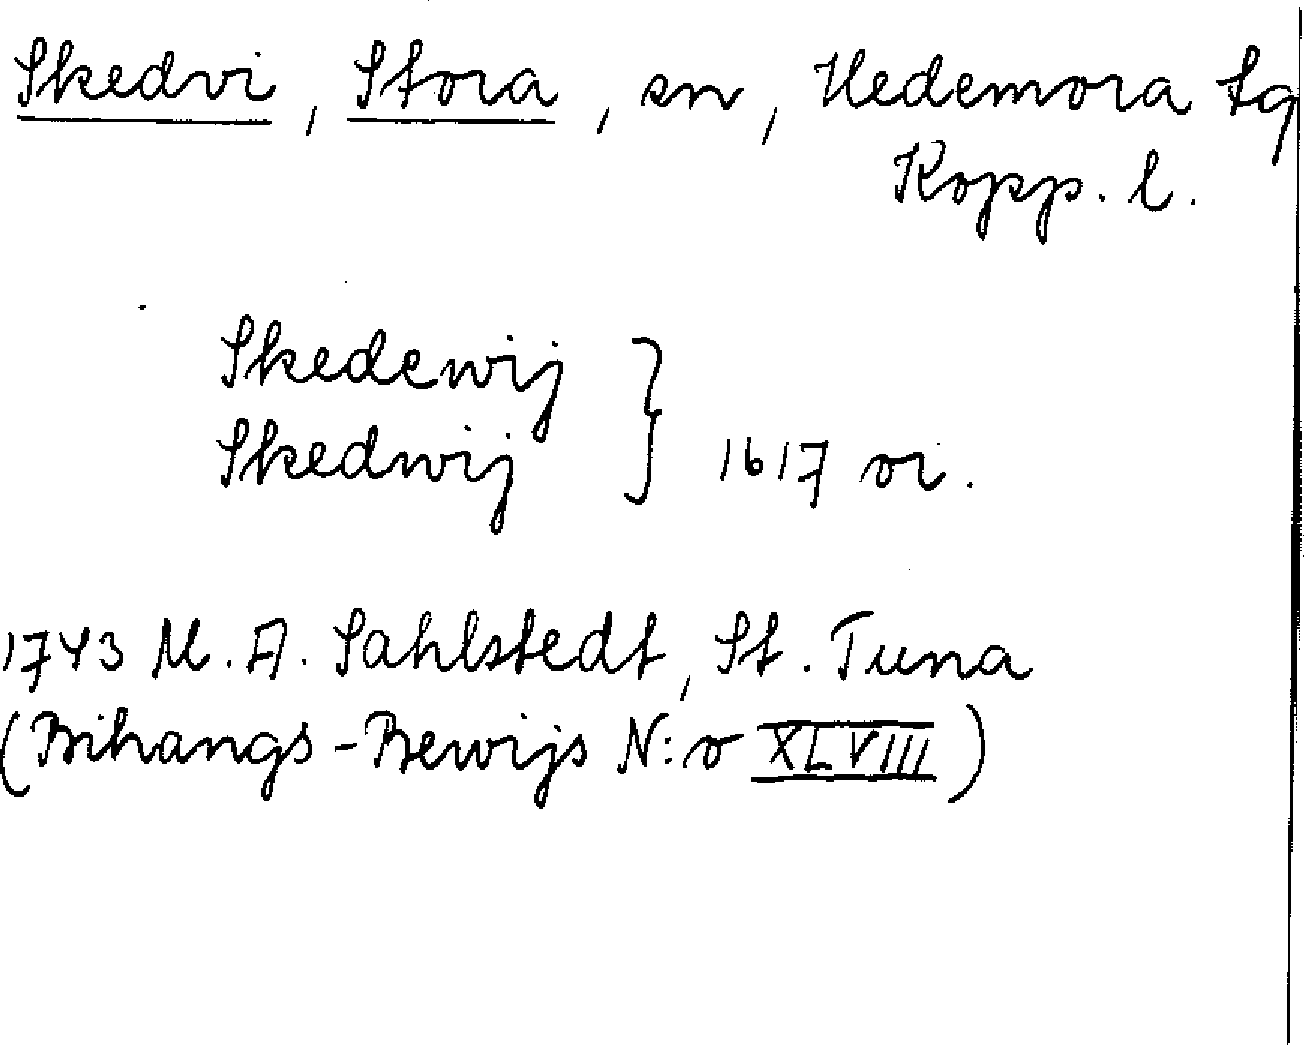 Skedvi, Stora, sn, Hedemora tg
Kopp. l.
Skedewij
Skedwij } 1617 or.
1743 M. A. Sahlstedt, St. Tuna
(Bihangs-Bewijs N:o XLVIII)